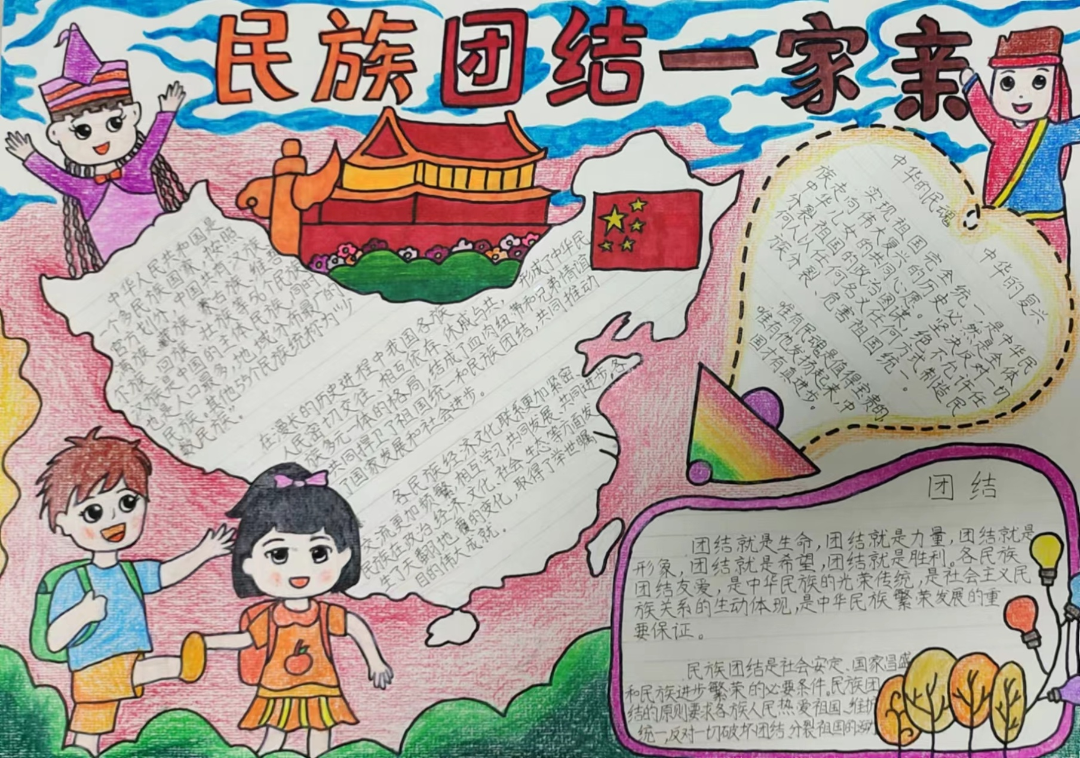 民族团结一家亲
中华人民共和国是
一个多民族国家，按照
官方划分，中国共有汉族、
满族、蒙古族、维吾尔
族、回族、壮族等56个民族。
汉族是中国的主体民族，同时
也是人口最多、地域分布最广的
民族，其他55个民族统称为“少
数民族”。
在漫长的历史进程中我国各族
人民密切交往、相互依存、休戚与共，形成了中华民
族多元一体的格局，结成了血肉纽带和兄弟情谊
共同捍卫了祖国统一和民族团结，共同推动
了国家发展和社会进步。
各民族经济文化联系更加紧密
交流更加频繁，相互学习，共同发展、共同进步，各
民族在政治、经济、文化、社会、生态等方面发
生了天翻地覆的变化，取得了举世瞩
目的伟大成就。
中华的民魂 中华的复兴
实现祖国完全统一，是中华民
族走向伟大复兴的历史必然，是全体
中华儿女的共同心愿。坚决反对一切
分裂祖国的政治图谋，绝不允许任
何人以任何名义任何方式制造民
族分裂、危害祖国统一。
唯有民魂是值得宝贵的
唯有他发扬起来，中
国才有真进步。
团结
团结就是生命，团结就是力量，团结就是
形象，团结就是希望，团结就是胜利。各民族
团结友爱，是中华民族的光荣传统，是社会主义民
族关系的生动体现，是中华民族繁荣发展的重
要保证。
民族团结是社会安定、国家昌盛
和民族进步繁荣的必要条件。民族团
结的原则要求各族人民热爱祖国、维护
统一，反对一切破坏团结、分裂祖国的